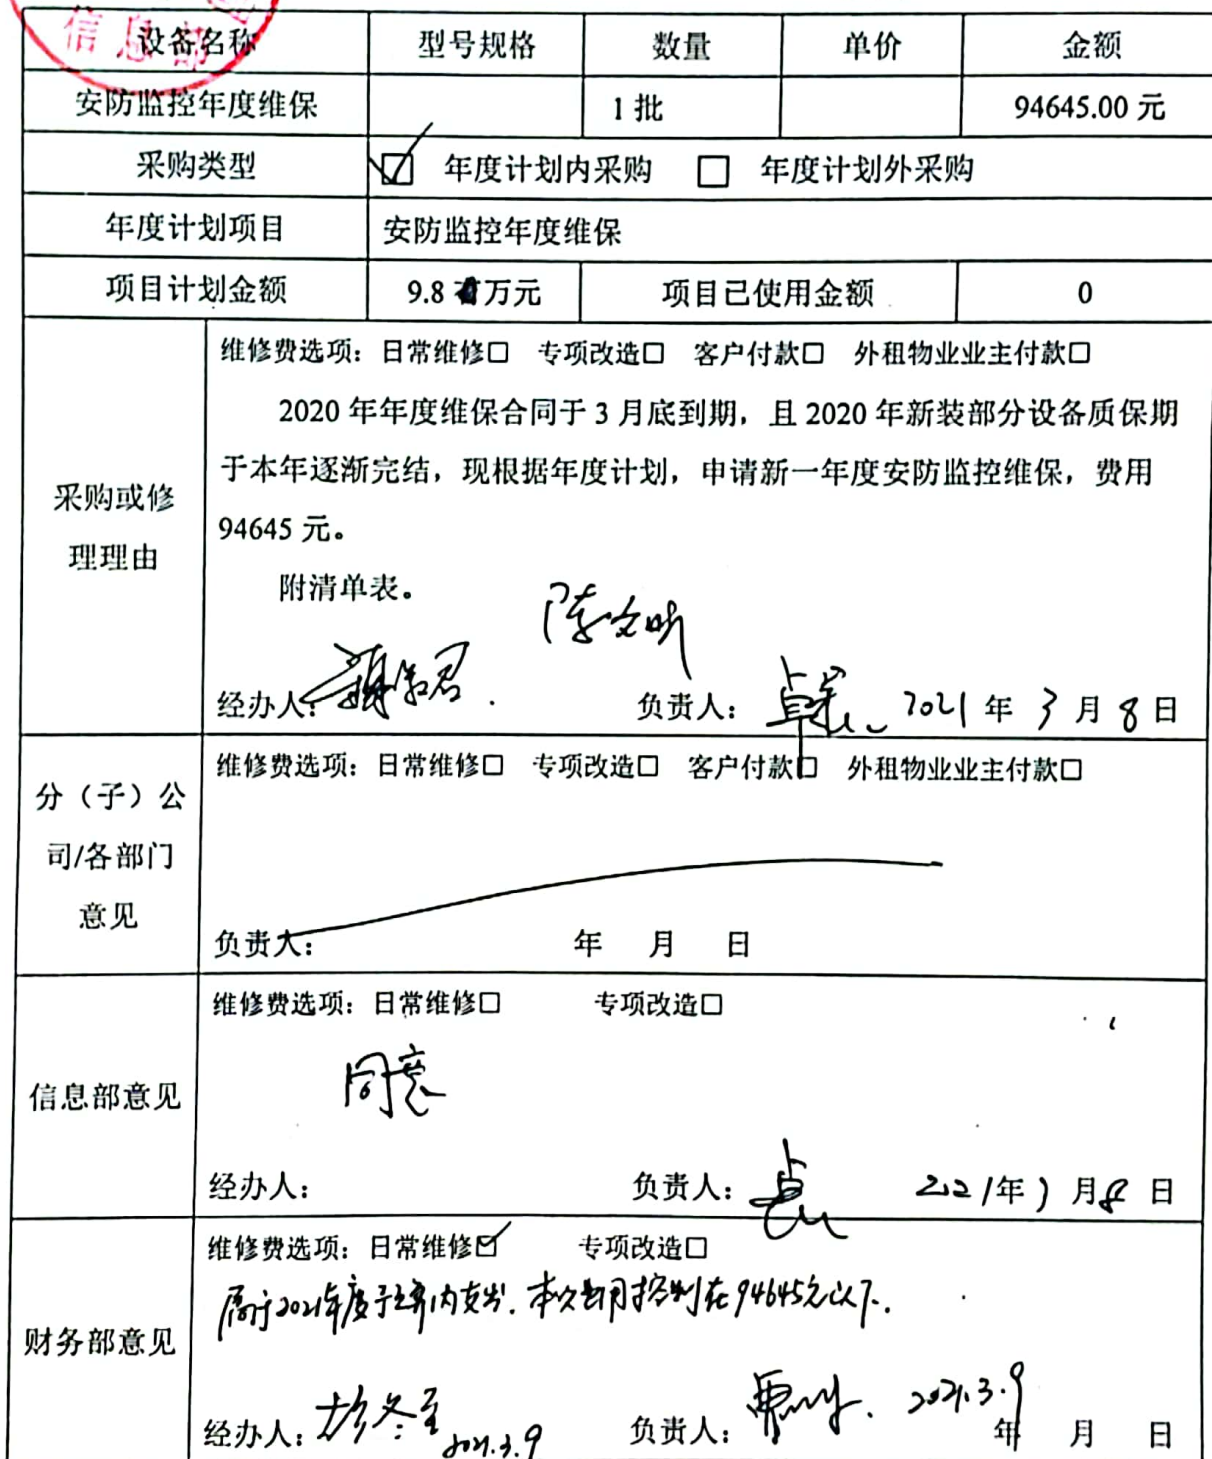 信息部
设备名称 型号规格 数量 单价 金额
安防监控年度维保 1批 94645.00元
采购类型 ☑ 年度计划内采购 □ 年度计划外采购
年度计划项目 安防监控年度维保
项目计划金额 9.8 万元 项目已使用金额 0
采购或修理理由
维修费选项：日常维修□ 专项改造□ 客户付款□ 外租物业业主付款□
2020年年度维保合同于3月底到期，且2020年新装部分设备质保期
于本年逐渐完结，现根据年度计划，申请新一年度安防监控维保，费用
94645元。
附清单表。
陈文明
经办人： 负责人： 2021年3月8日
分（子）公司/各部门意见
维修费选项：日常维修□ 专项改造□ 客户付款□ 外租物业业主付款□
负责人： 年 月 日
信息部意见
维修费选项：日常维修□ 专项改造□
同意
经办人： 负责人： 2021年3月8日
财务部意见
维修费选项：日常维修☑ 专项改造□
属于2021年度预算内支出，本次费用控制在94645元以下。
经办人： 2021.3.9 负责人： 2021.3.9 年 月 日